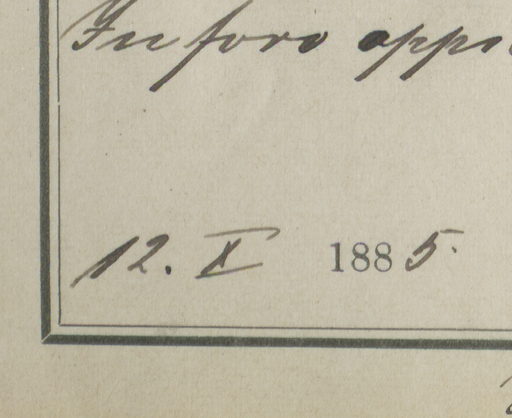 In foro oppi
12. X 1885.